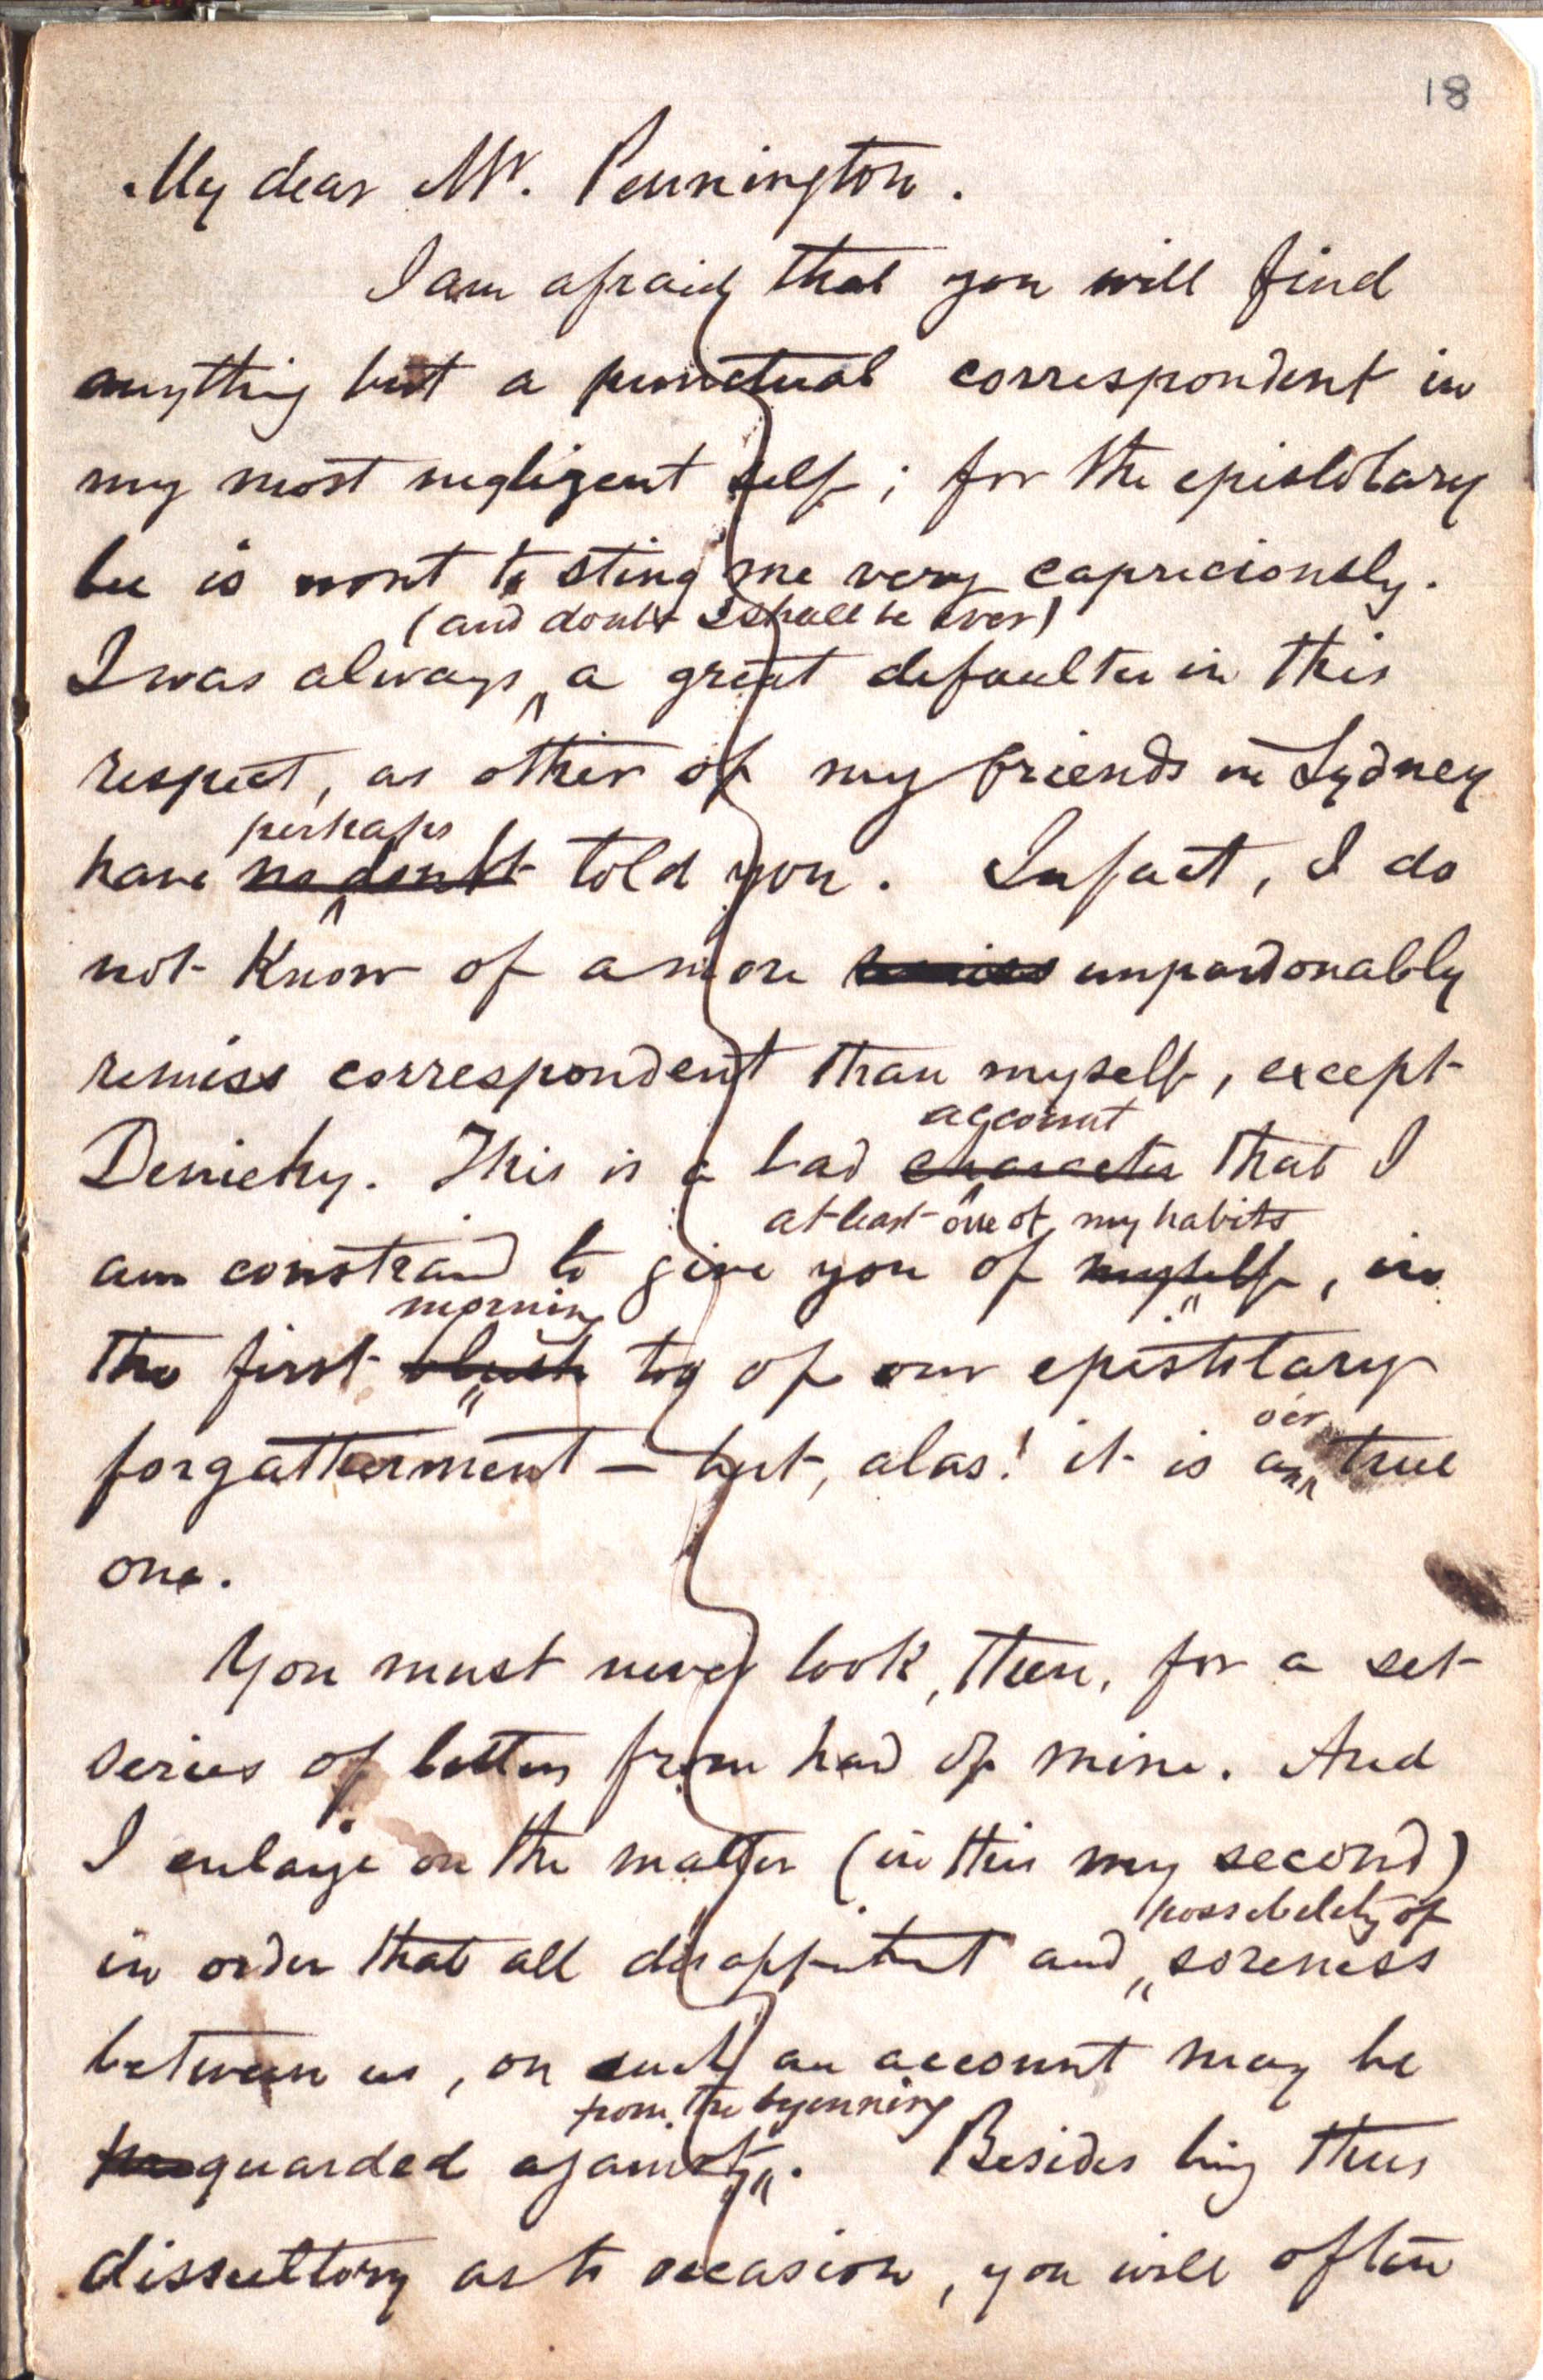 18
My dear Mr. Pennington.
I am afraid that you will find
anything but a punctual correspondent in
my most negligent self; for the epistolary
bee is wont to sting me very capriciously.
(and doubt I shall be ever)
I was always a great defaulter in this
respect, as other of my friends in Sydney
perhaps
have no doubt told you. In fact, I do
not know of a more remiss unpardonably
remiss correspondent than myself, except
Deniehy. This is a bad character that I
account
at least one of my habits
am constraind to give you of myself, in
morning
the first blush tog of our epistolary
forgatherment — but, alas! it is an true
oer
one.
You must never look, then, for a set
series of letters from had of mine. And
I enlarge on the matter (in this my second)
possibility of
in order that all disappintmt and soreness
between us, on such an account may be
from the beginning
guarded against. Besides being thus
dissultory as to occasion, you will often